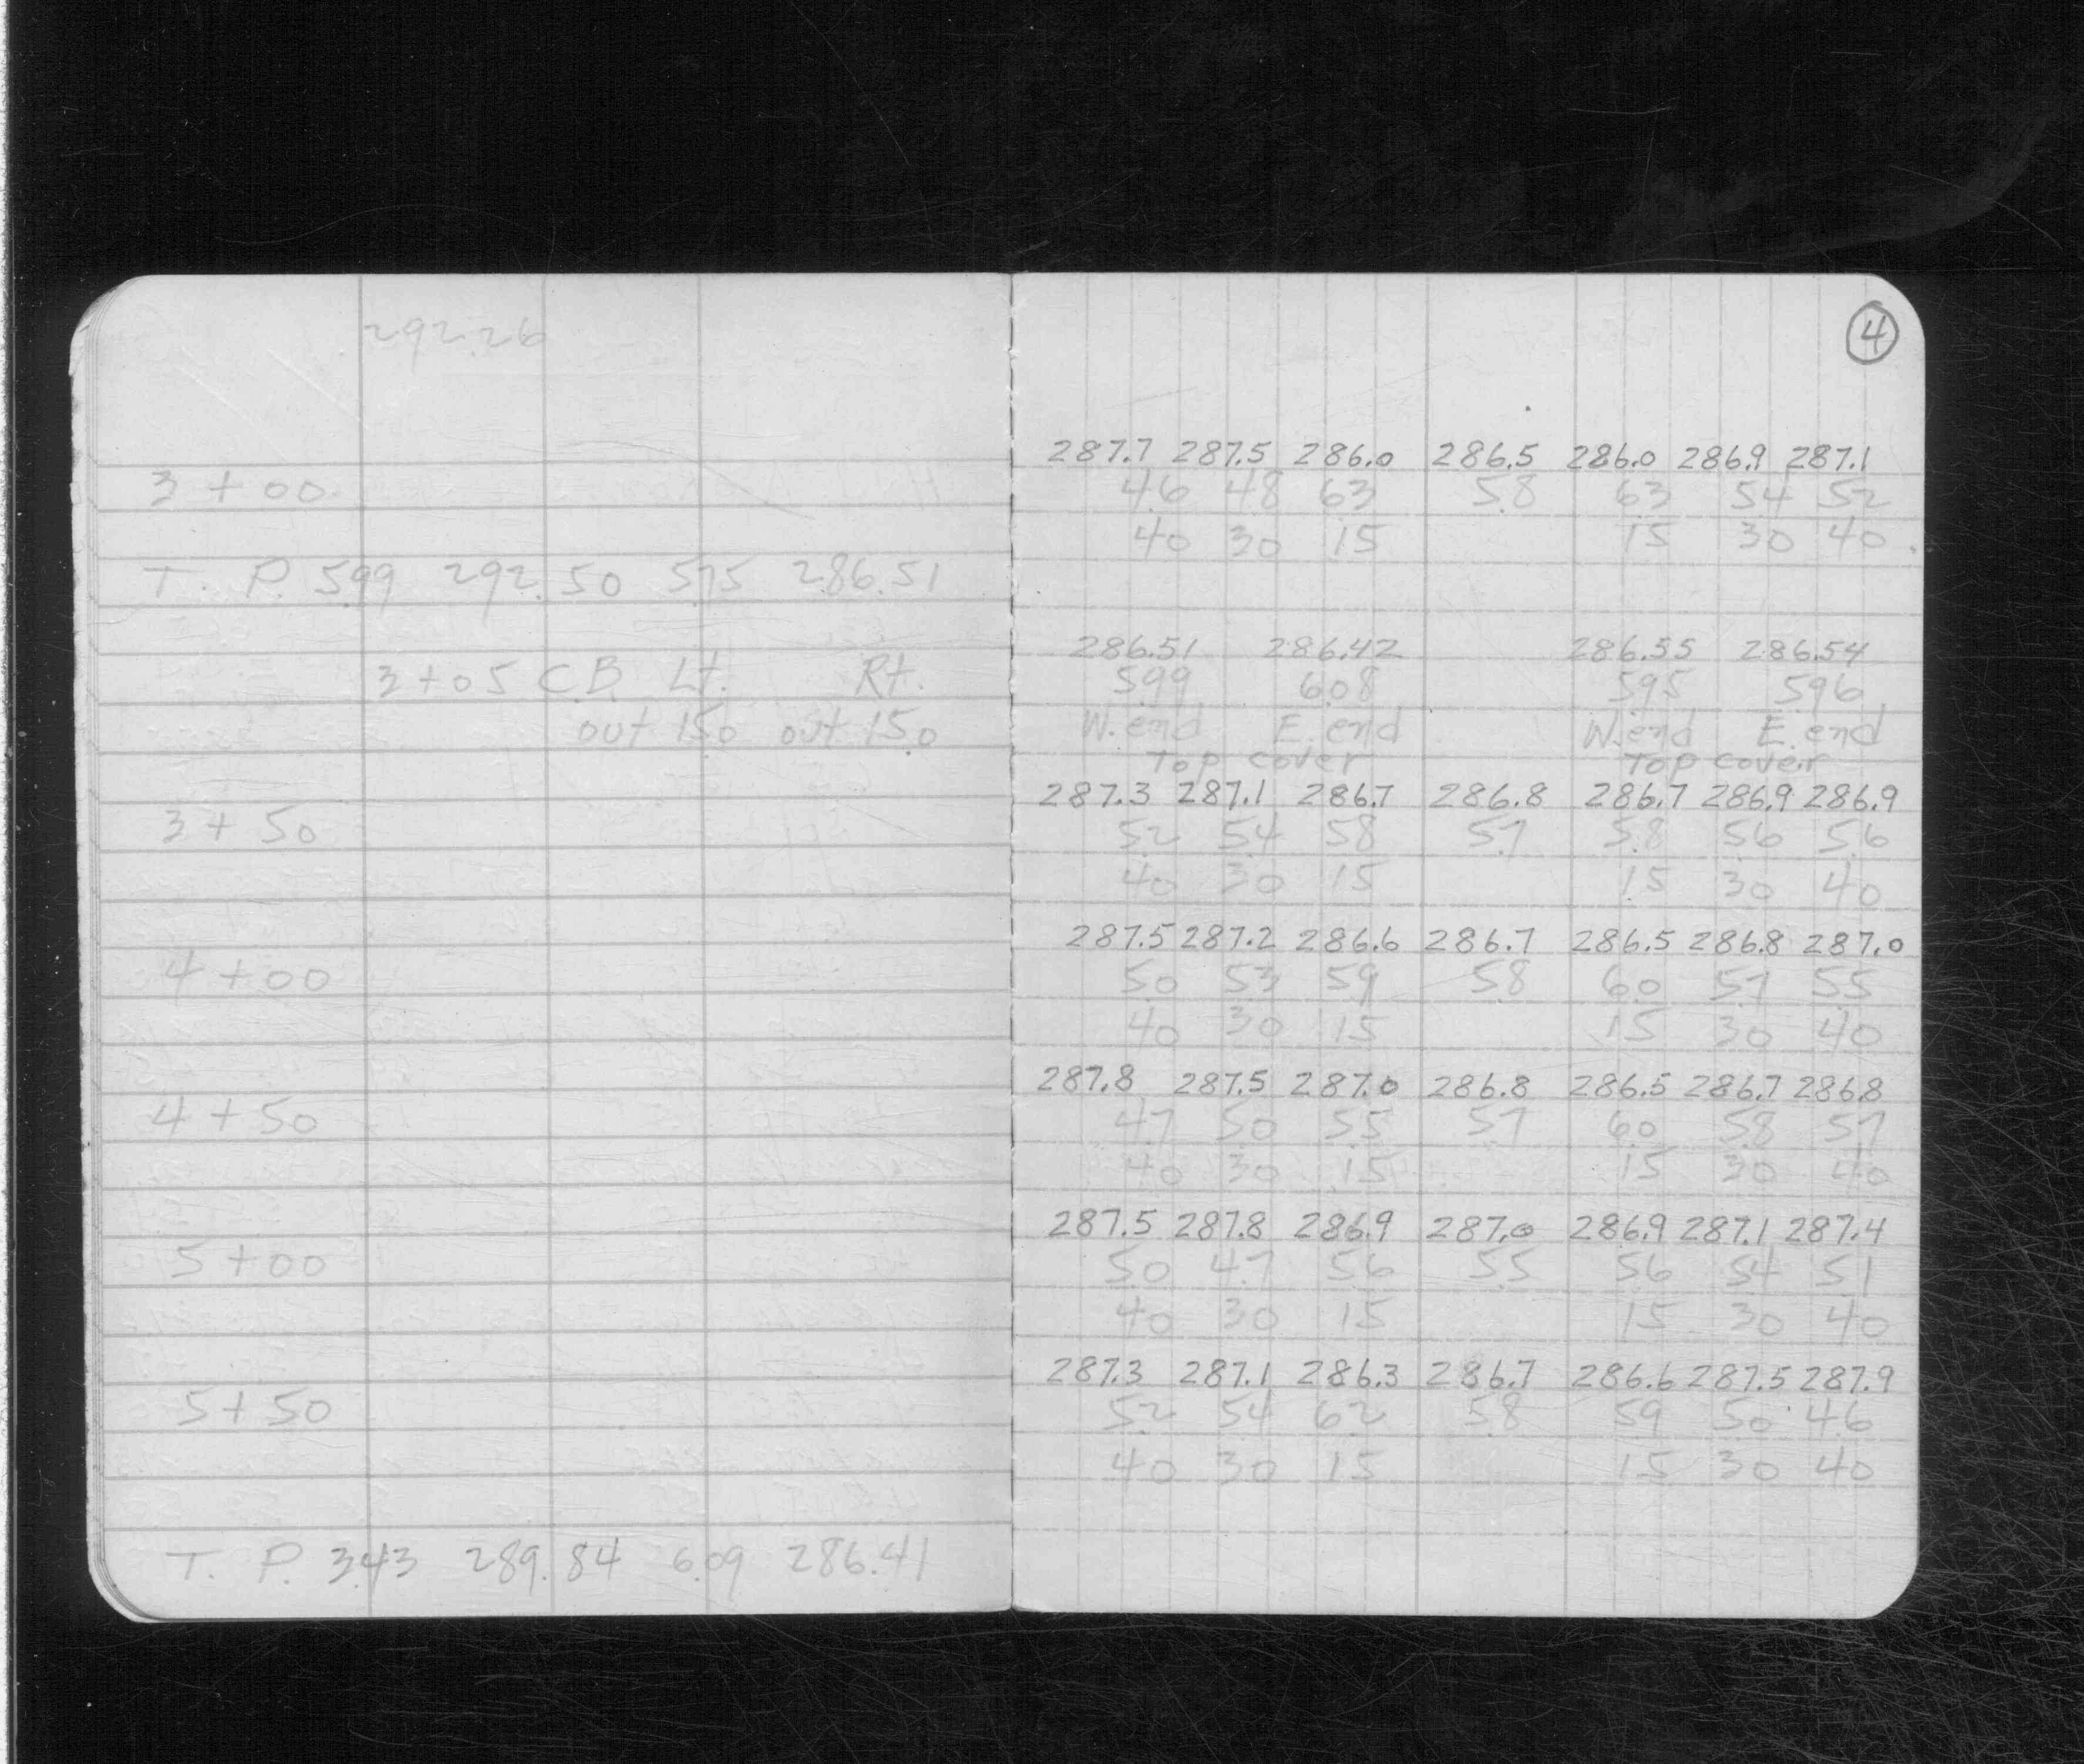 292.26
4
287.7 287.5 286.0 286.5 286.0 286.9 287.1
3 + 00 4.6 4.8 6.3 5.8 6.3 5.4 5.2
40 30 15 15 30 40
T. P. 5.99 292.50 5.75 286.51
286.51 286.42 286.55 286.54
3+05 C.B. Lt. Rt. 5.99 6.08 5.95 5.96
out 15.0 out 15.0 W. end E. end W. end E. end
Top cover Top cover
287.3 287.1 286.7 286.8 286.7 286.9 286.9
3 + 50 5.2 5.4 5.8 5.7 5.8 5.6 5.6
40 30 15 15 30 40
287.5 287.2 286.6 286.7 286.5 286.8 287.0
4 + 00 5.0 5.3 5.9 5.8 6.0 5.7 5.5
40 30 15 15 30 40
287.8 287.5 287.0 286.8 286.5 286.7 286.8
4 + 50 4.7 5.0 5.5 5.7 6.0 5.8 5.7
40 30 15 15 30 40
287.5 287.8 286.9 287.0 286.9 287.1 287.4
5 + 00 5.0 4.7 5.6 5.5 5.6 5.4 5.1
40 30 15 15 30 40
287.3 287.1 286.3 286.7 286.6 287.5 287.9
5 + 50 5.2 5.4 6.2 5.8 5.9 5.0 4.6
40 30 15 15 30 40
T. P. 3.43 289.84 6.09 286.41